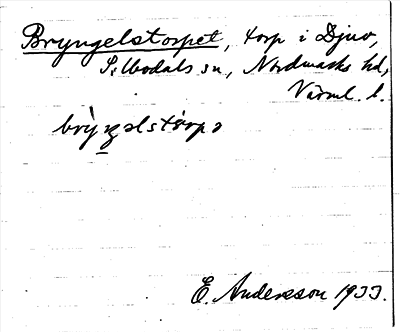 Bryngelstorpet, torp i Djuv,
Silbodals sn, Nordmarks hd,
Värml. l.
brỳŋəlstòrpə
E. Andersson 1933.